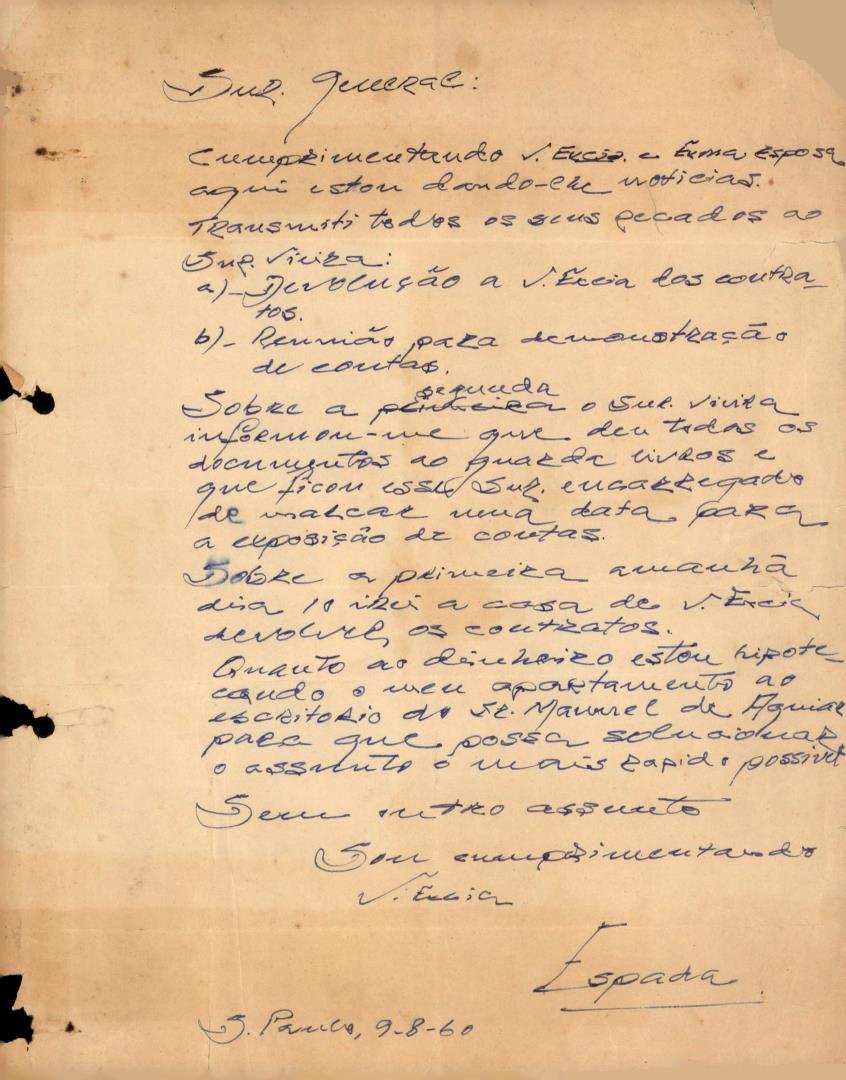 Snr. General:
Cumprimentando V. Excia. e Exma esposa
aqui estou dando-lhe noticias.
Transmiti todos os seus recados ao
Snr. Vieira:
a)- Devolução a V. Excia dos contra-
tos.
b)- Reunião para demonstração
de contas.
segunda
Sobre a primeira o Snr. Vieira
informou-me que deu todos os
documentos ao guarda livros e
que ficou esse Snr. encarregado
de marcar uma data para
a exposição de contas.
Sobre a primeira amanhã
dia 10 irei a casa de V. Excia
devolver os contratos.
Quanto ao dinheiro estou hipote-
cando o meu apartamento ao
escritorio do Sr. Manuel de Aguiar
para que possa solucionar
o assunto o mais rapido possivel
Sem outro assunto
Sou cumprimentando
V. Excia
Espada
S. Paulo, 9-8-60